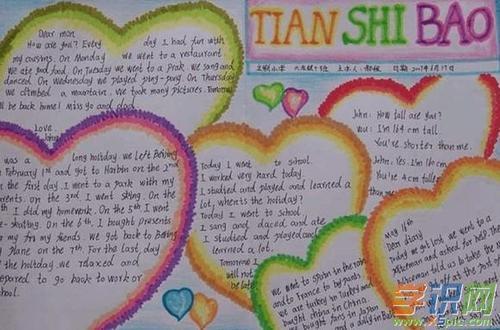 TIAN SHI BAO
Dear mom
How are you? Every day I had fun with
my cousins. On Monday we went to a restaurant.
We ate good food. On Tuesday we went to a Prak. We sang and
danced. On Wednesday we played ping-pong. On Thursday
we climbed a mountain. We took many pictures. Tomorrow
be back home! Miss you and dad.
Love,
was a long holiday. we left Beijing
on February 1st and got to Harbin on the 2nd
the first day. I went to a park with my
parents. on the 3rd I went skiing. On the
I did my homework. On the 5th I went
On the 6th I bought presents
for my friends. We got back to Beijing
by plane on the 7th. For the last day
of the holiday. we relaxed and
prepared to go back to work or
school.
Today I went to school.
I worked very hard today.
I studied and played and learned a
lot, when's the holiday?
Today I went to school.
I sang and daced and ate
I studied and played and
learned a lot.
Tomorrow I
will not
be late
John: How tall are you?
You: I'm 164 cm tall.
You're shorter than me.
John: Yes. I'm 160 cm
You're 4 cm taller
than
We went to Spain
and to France by
we ate turkey in Turkey and
bought china in China.
May 11th
Dear diary
Today we got lost. we went to a
Policeman and asked for help. The
Policeman told us to take the
学识网